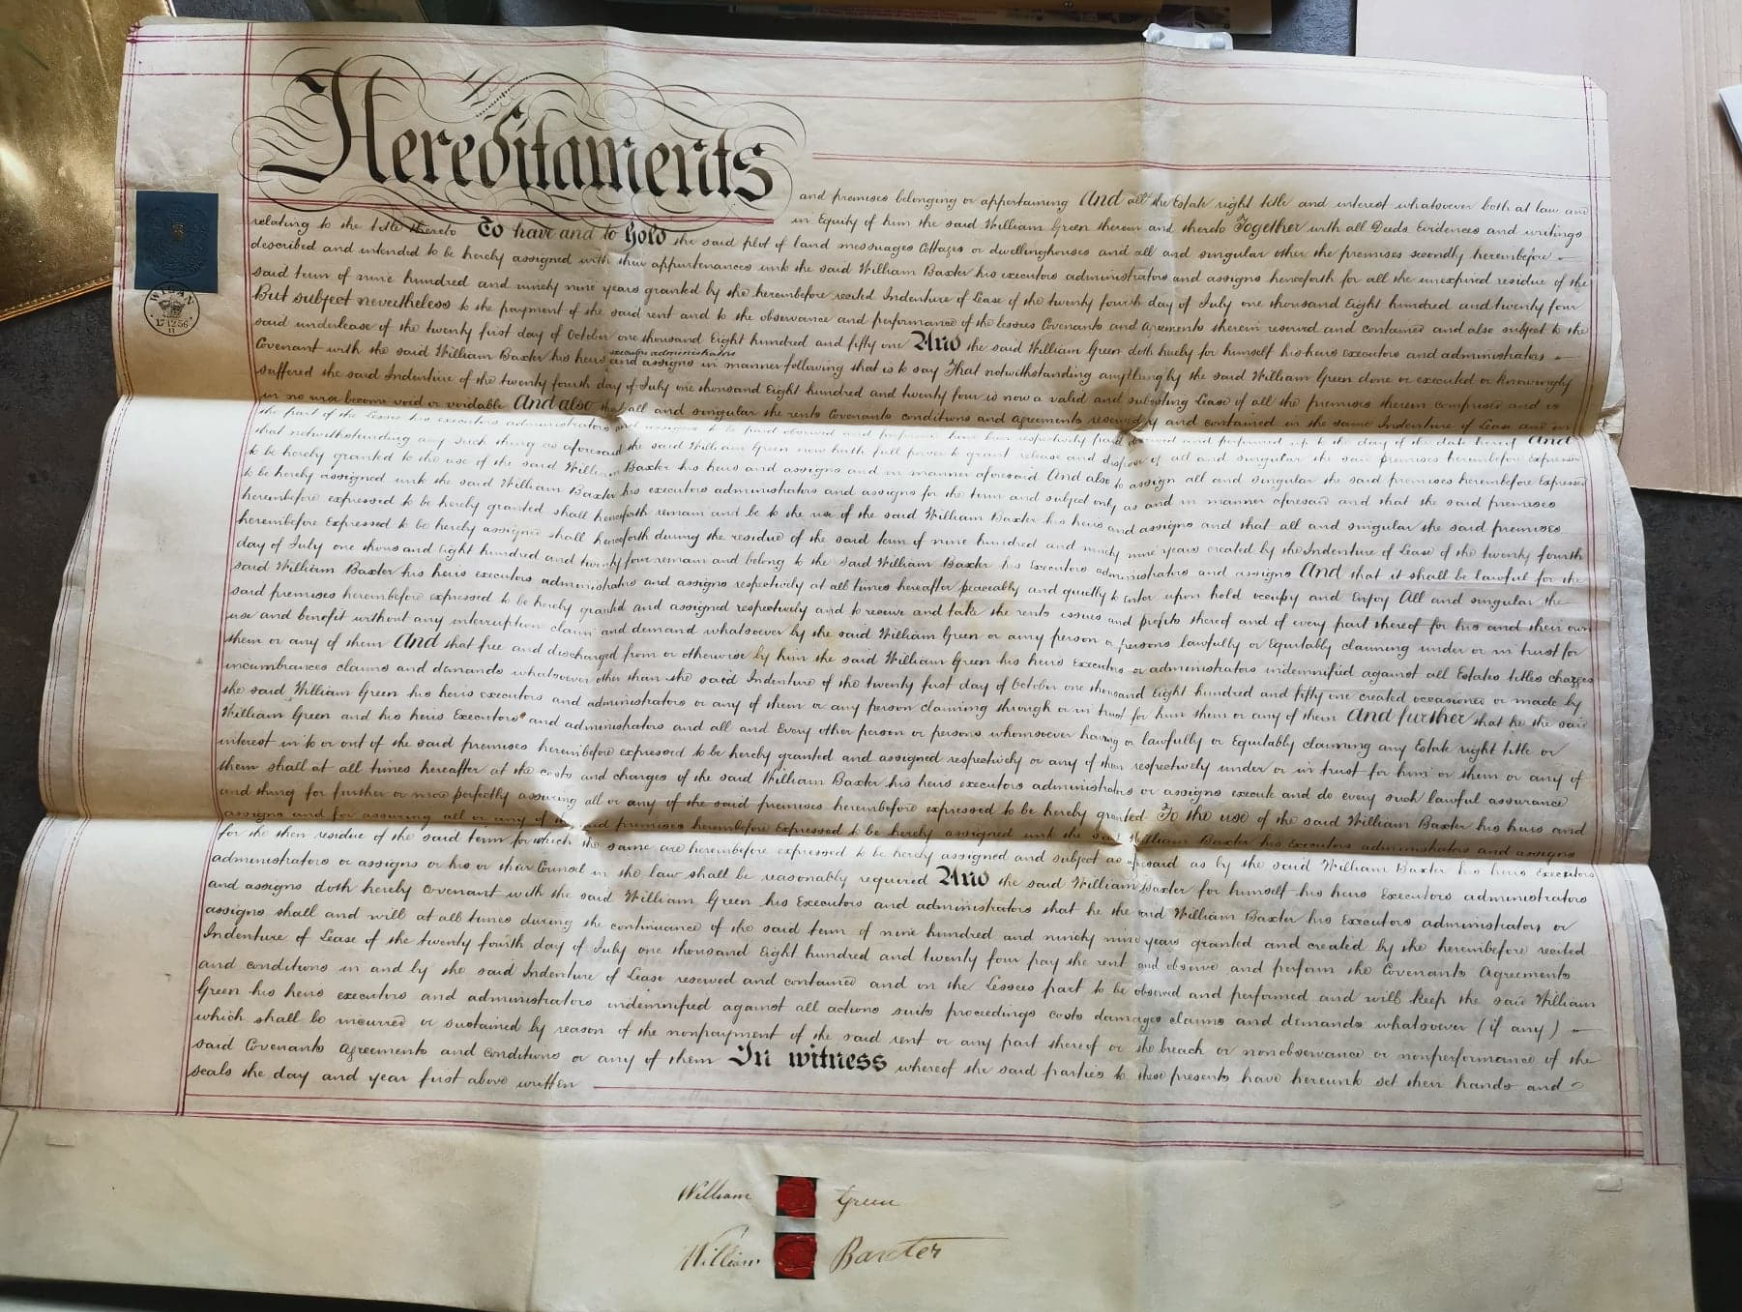 Hereditaments
and premises belonging or appertaining And all the Estate right title and interest whatsoever both at law and
in Equity of him the said William Green therein and thereto Together with all Deeds Evidences and writings
relating to the title thereto To have and to hold the said plot of land messuages Cottages or dwellinghouses and all and singular other the premises secondly hereinbefore
described and intended to be hereby assigned with their appurtenances unto the said William Baxter his executors administrators and assigns henceforth for all the unexpired residue of the
said term of nine hundred and ninety nine years granted by the hereinbefore recited Indenture of Lease of the twenty fourth day of July one thousand Eight hundred and twenty four
But subject nevertheless to the payment of the said rent and to the observance and performance of the lessees Covenants and agreements therein reserved and contained and also subject to the
said underlease of the twenty first day of October one thousand Eight hundred and fifty one And the said William Green doth hereby for himself his heirs executors and administrators
executors administrators
Covenant with the said William Baxter his heirs and assigns in manner following that is to say That notwithstanding anything by the said William Green done or executed or knowingly
suffered the said Indenture of the twenty fourth day of July one thousand Eight hundred and twenty four is now a valid and subsisting Lease of all the premises therein comprised and is
in no wise become void or voidable And also that all and singular the rents Covenants conditions and agreements reserved by and contained in the same Indenture of Lease and on
the part of the Lessee his executors administrators and assigns to be paid observed and performed have been respectively paid observed and performed up to the day of the date hereof And
that notwithstanding any such thing as aforesaid the said William Green now hath full power to grant release and dispose of all and singular the said premises hereinbefore expressed
to be hereby granted to the use of the said William Baxter his heirs and assigns and in manner aforesaid And also to assign all and singular the said premises hereinbefore Expressed
to be hereby assigned unto the said William Baxter his executors administrators and assigns for the term and subject only as and in manner aforesaid and that the said premises
hereinbefore expressed to be hereby granted shall henceforth remain and be to the use of the said William Baxter his heirs and assigns and that all and singular the said premises
hereinbefore Expressed to be hereby assigned shall henceforth during the residue of the said term of nine hundred and ninety nine years created by the Indenture of Lease of the twenty fourth
day of July one thousand Eight hundred and twenty four remain and belong to the said William Baxter his Executors administrators and assigns And that it shall be lawful for the
said William Baxter his heirs executors administrators and assigns respectively at all times hereafter peaceably and quietly to Enter upon hold occupy and Enjoy All and singular the
said premises hereinbefore expressed to be hereby granted and assigned respectively and to receive and take the rents issues and profits thereof and of every part thereof for his and their own
use and benefit without any interruption claim and demand whatsoever by the said William Green or any person or persons lawfully or Equitably claiming under or in trust for
them or any of them And that free and discharged from or otherwise by him the said William Green his heirs Executors or administrators indemnified against all Estates titles charges
incumbrances claims and demands whatsoever other than the said Indenture of the twenty first day of October one thousand Eight hundred and fifty one created occasioned or made by
the said William Green his heirs executors and administrators or any of them or any person claiming through or in trust for him them or any of them And further that he the said
William Green and his heirs Executors and administrators and all and Every other person or persons whomsoever having or lawfully or Equitably claiming any Estate right title or
interest in to or out of the said premises hereinbefore expressed to be hereby granted and assigned respectively or any of them respectively under or in trust for him or them or any of
them shall at all times hereafter at the costs and charges of the said William Baxter his heirs executors administrators or assigns execute and do every such lawful assurance
and thing for further or more perfectly assuring all or any of the said premises hereinbefore expressed to be hereby granted To the use of the said William Baxter his heirs and
assigns and for assuring all or any of the said premises hereinbefore Expressed to be hereby assigned unto the said William Baxter his Executors administrators and assigns
for the then residue of the said term for which the same are hereinbefore expressed to be hereby assigned and subject as aforesaid as by the said William Baxter his heirs Executors
administrators or assigns or his or their Counsel in the law shall be reasonably required And the said William Baxter for himself his heirs Executors administrators
and assigns doth hereby Covenant with the said William Green his Executors and administrators that he the said William Baxter his Executors administrators or
assigns shall and will at all times during the continuance of the said term of nine hundred and ninety nine years granted and created by the hereinbefore recited
Indenture of Lease of the twenty fourth day of July one thousand Eight hundred and twenty four pay the rent and observe and perform the Covenants Agreements
and conditions in and by the said Indenture of Lease reserved and contained and on the Lessees part to be observed and performed and will keep the said William
Green his heirs executors and administrators indemnified against all actions suits proceedings costs damages claims and demands whatsoever (if any)
which shall be incurred or sustained by reason of the nonpayment of the said rent or any part thereof or the breach or nonobservance or nonperformance of the
said Covenants Agreements and conditions or any of them In witness whereof the said parties to these presents have hereunto set their hands and
seals the day and year first above written
WIGAN
17 12 56
William Green
William Baxter